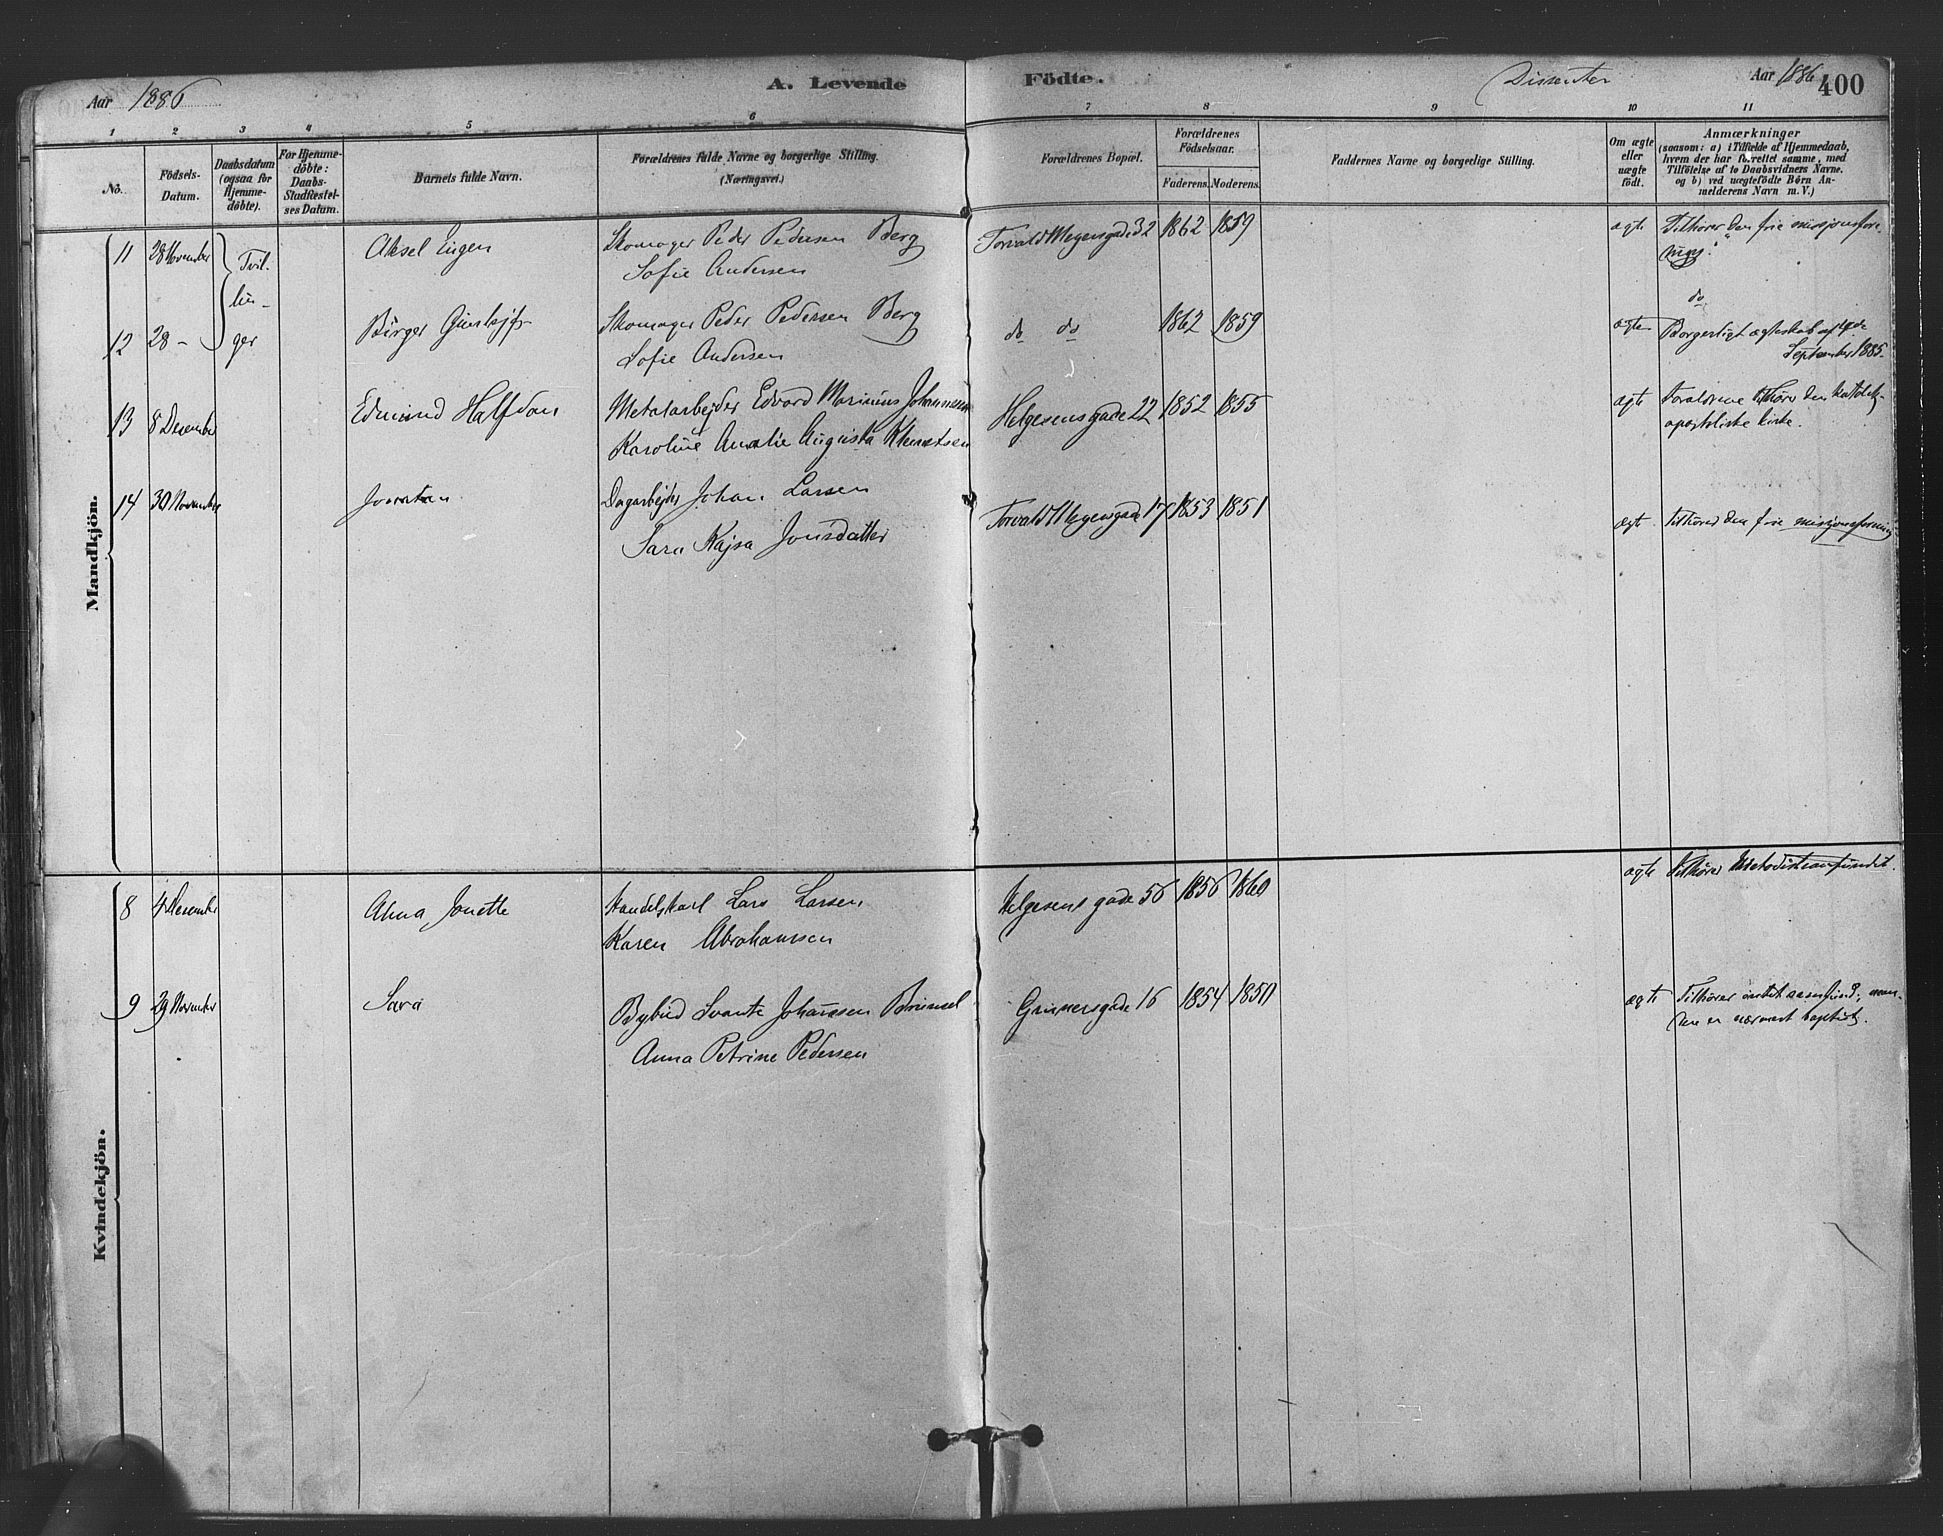 Aar 1886 A. Levende Födte. Dissenter Aar 1886 400
1 2 3 4 5 6 7 8 9 10 11
No.
Födsels-
Datum.
Daabsdatum
(ogsaa for
Hjemme-
döbte).
For Hjemme-
döbte:
Daabs-
Stadfæstel-
ses Datum.
Barnets fulde Navn.
Forældrenes fulde Navne og borgerlige Stilling.
(Næringsvei.)
Forældrenes Bopæl.
Forældrenes
Födselsaar.
Faderens. Moderens.
Faddernes Navne og borgerlige Stilling.
Om ægte
eller
uægte
födt.
Anmærkninger
(saasom: a) i Tilfælde af Hjemmedaab,
hvem der har forrettet samme, med
Tilföielse af to Daabsvidners Navne,
og b) ved uægtefödte Börn An-
melderens Navn m. V.)
Mandkjön.
11 28 November Tvil- Aksel Eugen Skomager Peder Pedersen Berg Torvald Meyersgade 32 1862 1859 ægte Tilhører "den frie missjonsfore-
Sofie Andersen ning".
lin-
12 28 - ger Birger Skomager Peder Pedersen Berg do do 1862 1859 ægte do
Sofie Andersen Borgerligt ægteskab
September 1885.
13 8 December Edmund Halfdan Metalarbejder Edvard Marinius Johannesen Helgesensgade 22 1852 1855 ægte Foraldrene tilhører den katolsk-
Karoline Amalie Augusta apostoliske kirke.
14 30 November Dagarbejder Johan Larsen Torvald Meyersgade 17 1853 1851 ægte Tilhører den frie missjonsforening
Sara Kajsa Jonsdatter
Kvindekjön.
8 4 December Alma Jonette Handelskarl Lars Larsen Helgesens gade 56 1856 1860 ægte Tilhører Metodistsamfundet.
Karen Abrahamsen
9 29 November Sara Bybud Svante Johansen Grünersgade 16 1854 1850 ægte Tilhører intet samfund; man-
Anna Petrine Pedersen nen er nærmest baptist.